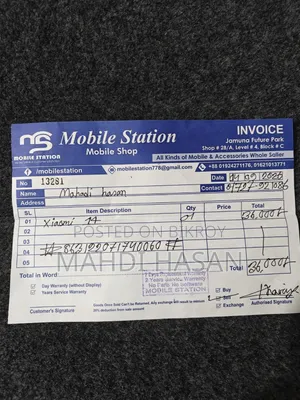 ms
MOBILE STATION
Mobile Station
Mobile Shop
INVOICE
Jamuna Future Park
Shop # 28/A, Level # 4, Block # C
All Kinds of Mobile & Accessories Whole Saller
/mobilestation
mobilestation778@gmail.com
+88 01924271176, 01621013771
No 13281 Date
Name Mahadi hasan Contact
SL Item Description Qty Price Total
01 Xiaomi
02
POSTED ON BIKROY
03
MAHDI HASAN
04
05
Total in Word Total
Day Warranty (without Display)
Years Service Warranty
7 Days Replacement Warranty
2 Years Service Warranty
MOBILE STATION
Buy
Sell
Exchange
Customer's Signature
Goods Once Sold Can't be Returned, Any exchange will result in
20% deduction from sale amount.
Authorised Signature